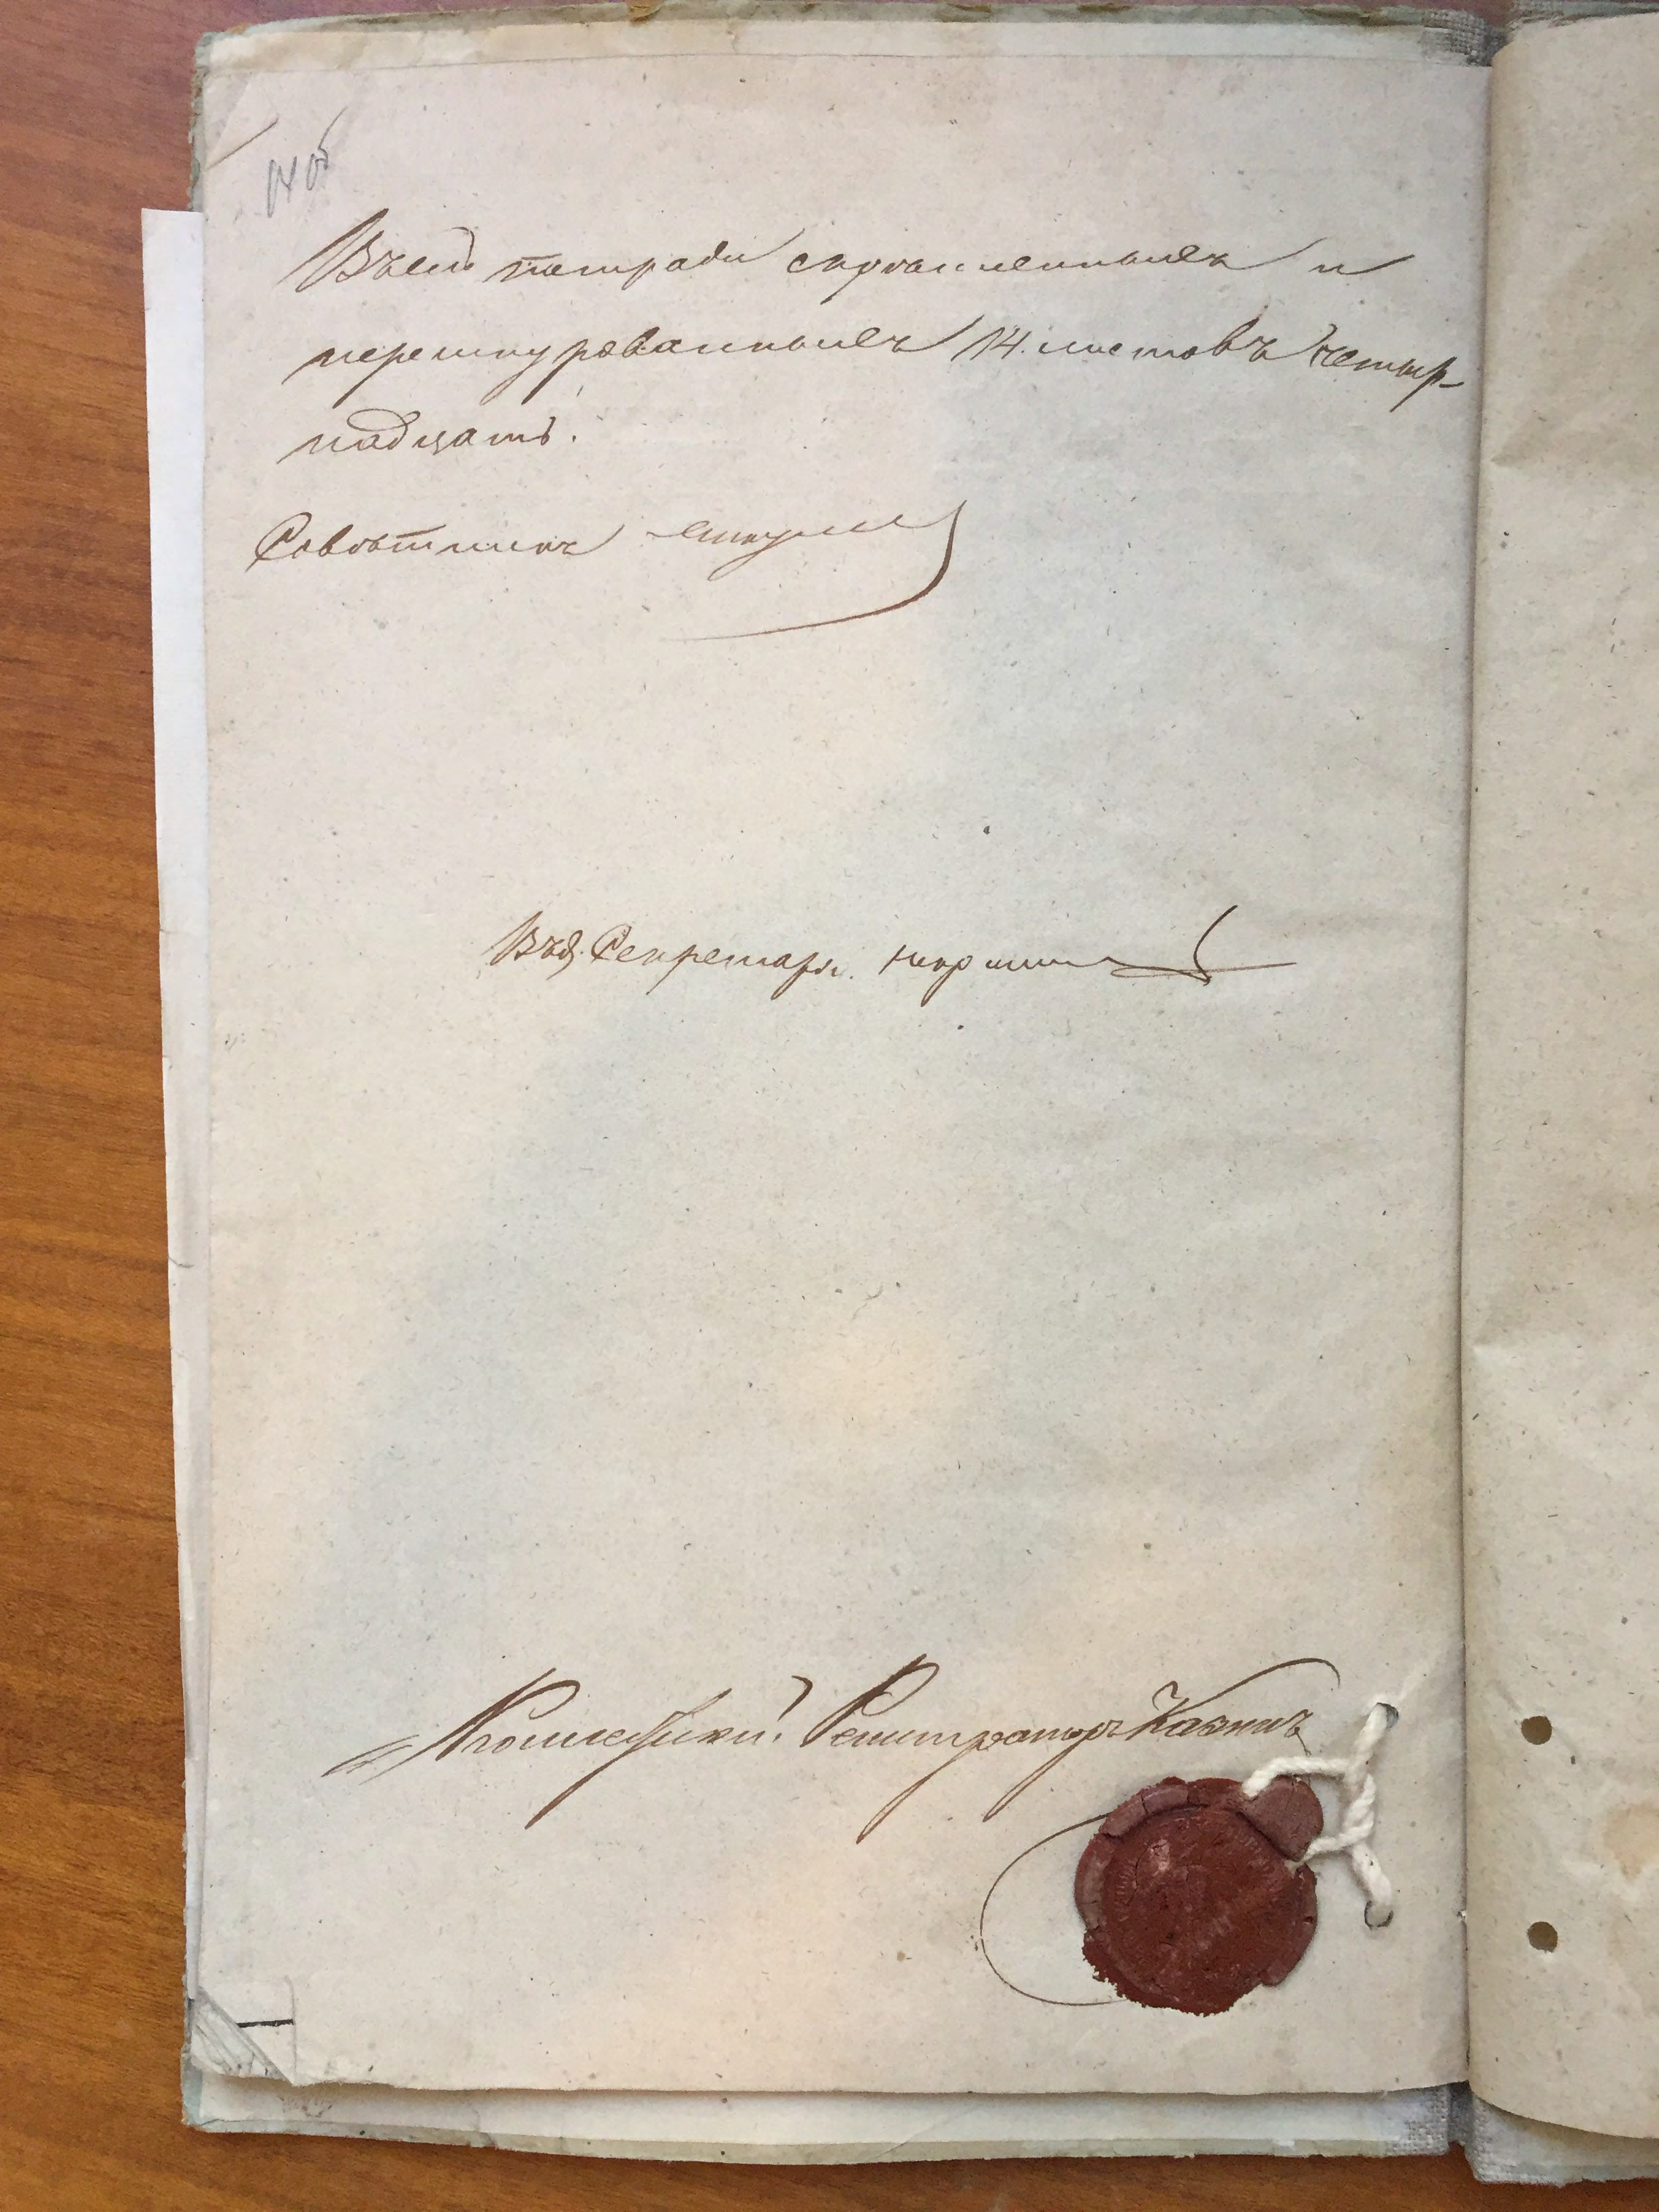 Въ сей тетради скрѣпленныхъ и
перешнурованныхъ 14. листовъ четыр-
надцать.
Совѣтникъ
Въ д. Секретаря.
Коллежскій Регистраторъ